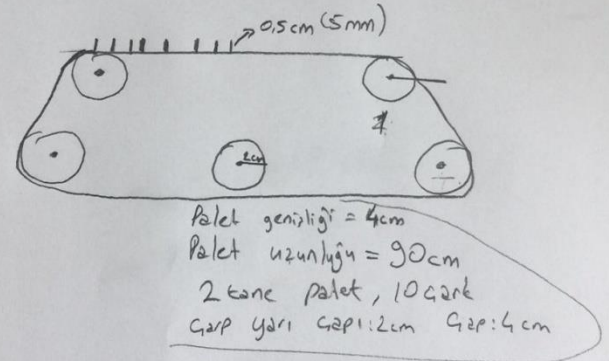 0,5cm (5mm)
2cm
Palet genişliği = 4cm
Palet uzunluğu = 90cm
2 tane palet, 10 Çark
Çarp yarı Çapı: 2cm Çap: 4cm